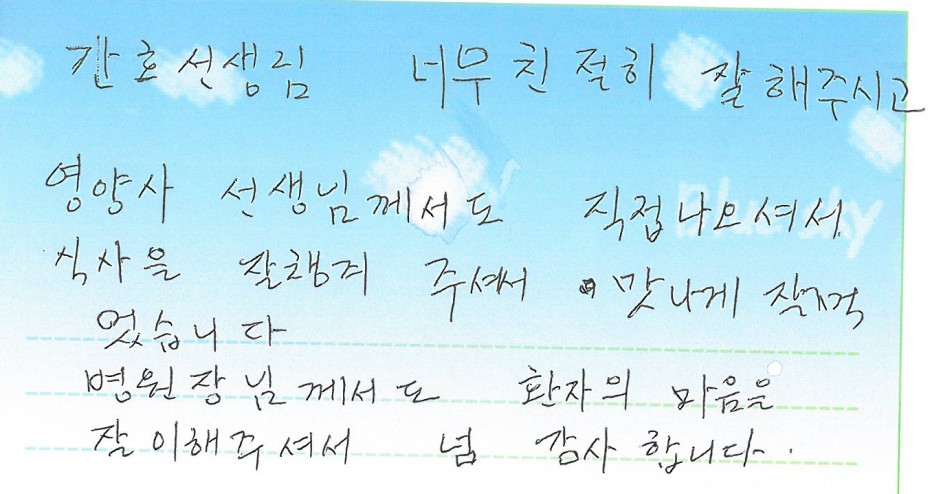 간호선생림 너무친절히 잘해주시고
영양사 선생님께서도 직접나으셔서
식사을 잘챙겨 주셔서 맛나게 잘먹
었습니다
병원장님께서도 환자의 마음을
잘이해주셔서 넘 감사합니다.
Blue sky